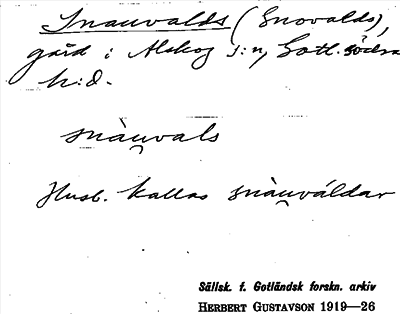 Snauvalds (Snovalds),
gård i Alskog s:n, Gotl. södra
h:d.
snàu̯vals
Husb. kallas snàu̯váldar
Sällsk. f. Gotländsk forskn. arkiv
HERBERT GUSTAVSON 1919—26